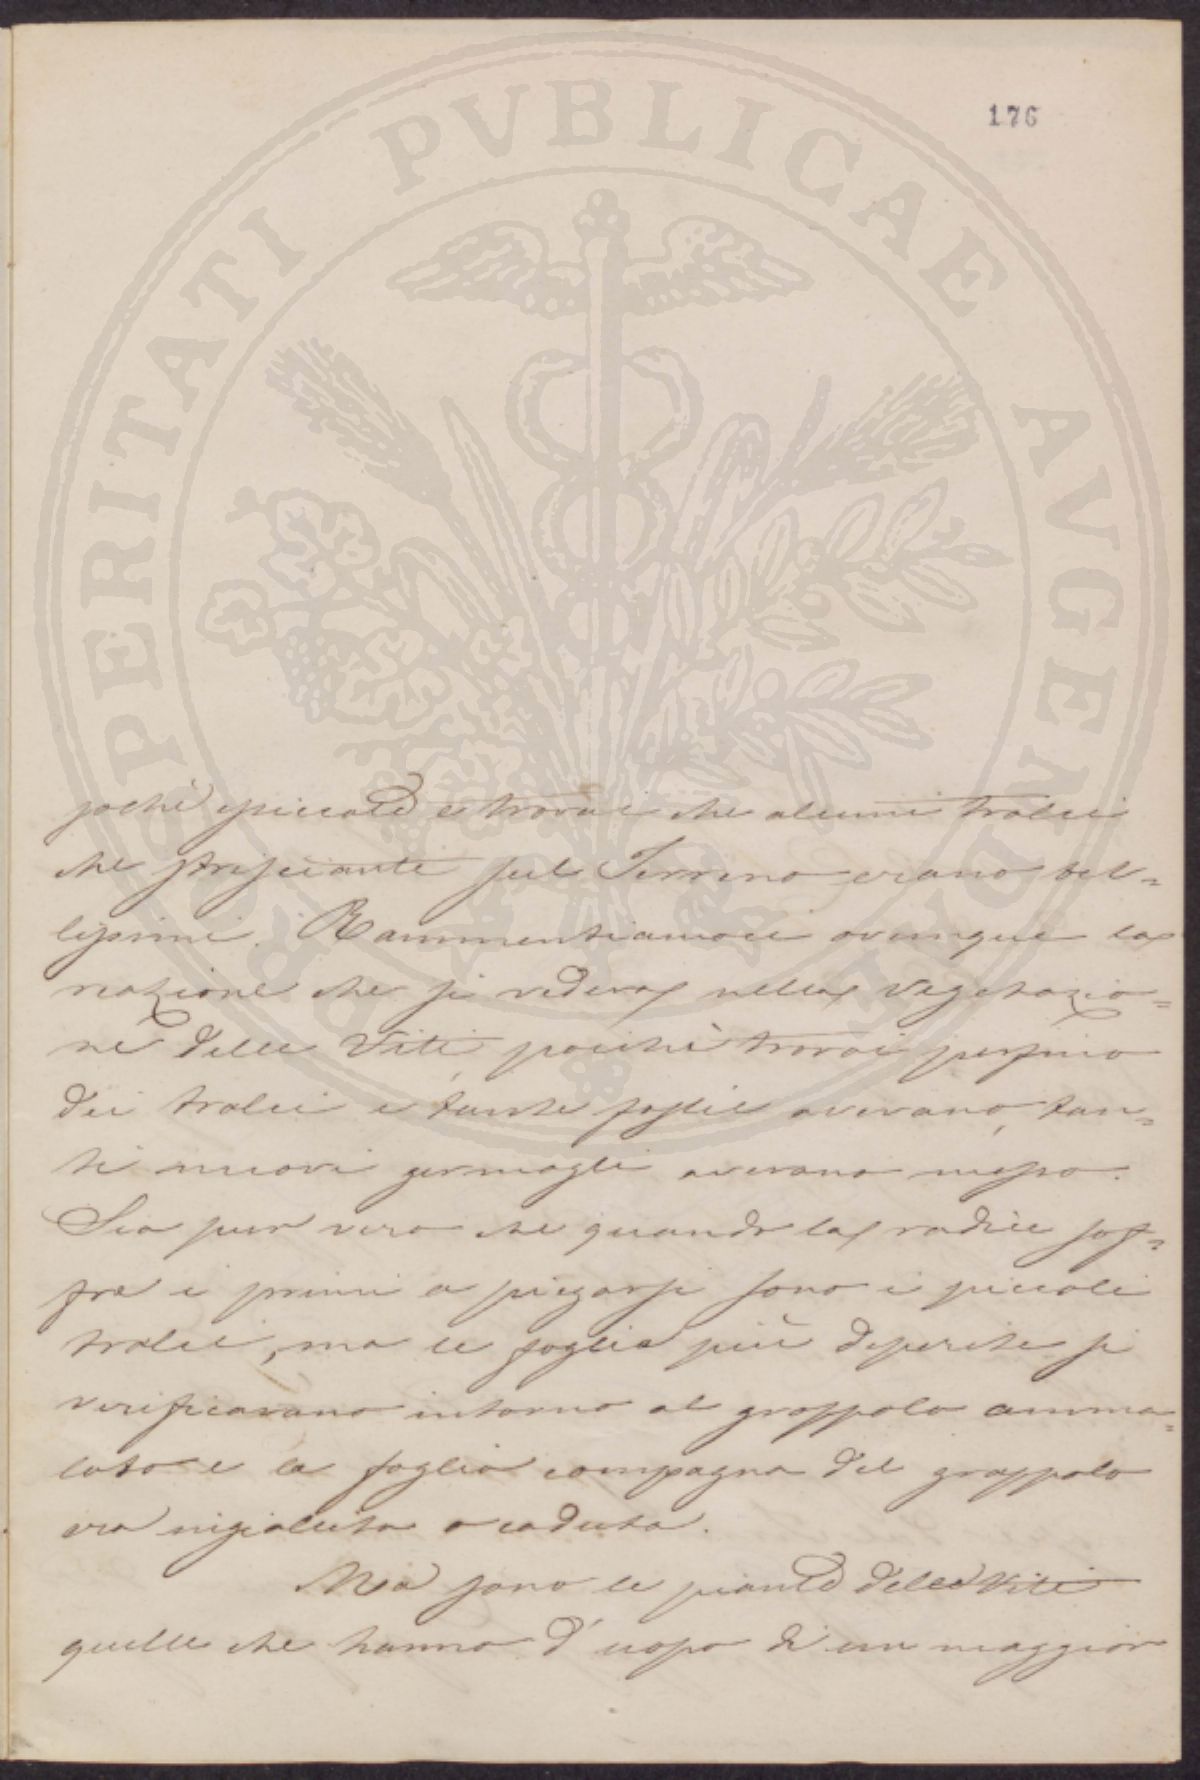 176
PROSPERITATI PVBLICAE AVGENDAE
pochè spiccate e trovai che alcuni tralci
che striscianti sul Terreno erano bel=
lissimi. Rammentiamoci ovunque la
reazione che si vedeva nella vegetazio=
ne delle Viti, poichè trovai perfino
dei tralci e tante foglie avevano, tan=
ti nuovi germogli avevano messo.
Sia pur vero che quando la radice sof=
fre i primi a piegarsi sono i piccoli
tralci, ma le foglie più deperite si
verificavano intorno al grappolo amma=
lato e la foglia compagna del grappolo
era ingiallita o caduta.
Ma sono le piante delle Viti
quelle che hanno d'uopo di un maggior